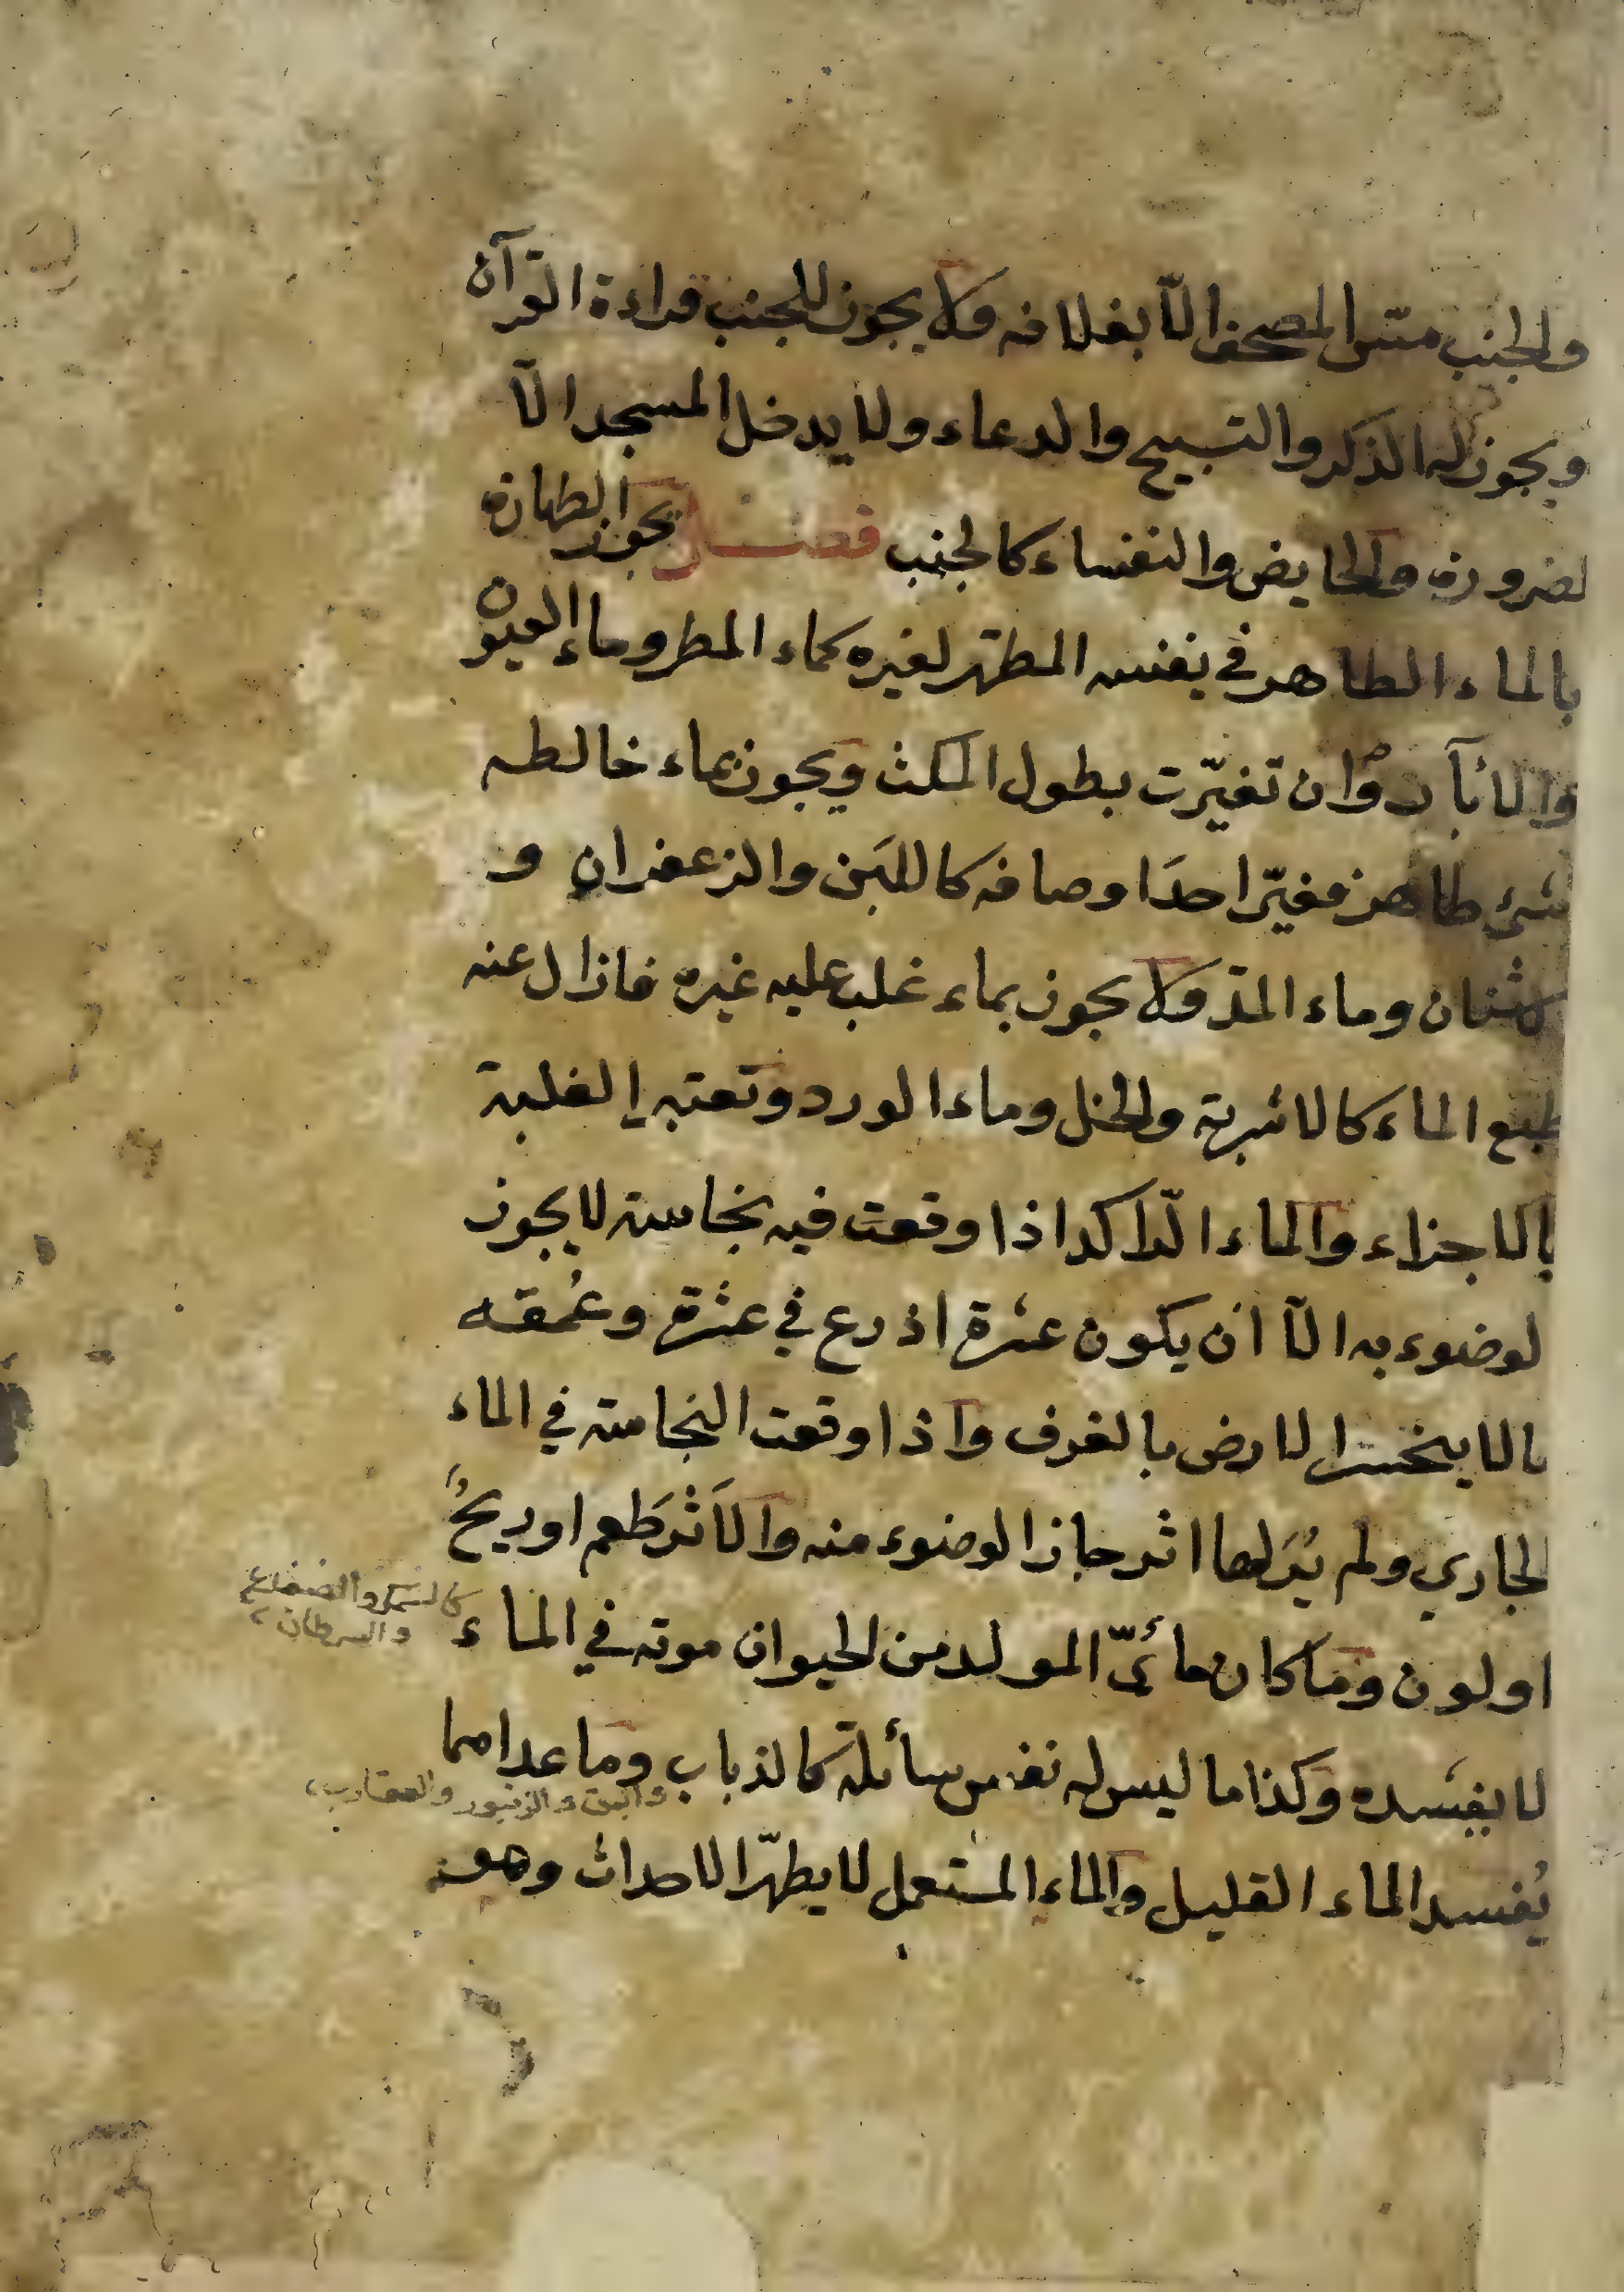 والجنب مسّ المصحف الّا بغلافه ولا يجوز للجنب قراءة القرآن
ويجوز له الذكر والتسبيح والدعاء ولا يدخل المسجد الّا
لضرورة والحايض والنفساء كالجنب فصل يجوز الطهارة
بالماء الطاهر في نفسه المطهّر لغيره كماء المطر وماء العيون
والأبآر وان تغيّرت بطول المكث ويجوز بماء خالطه
شئ طاهر فغيّر احدَ اوصافه كاللبَن والزعفران و
لاشنان وماء المدّ ولا يجوز بماء غلب عليه غيره فازال عنه
طبع الماء كالاشربة والخل وماء الورد وتعتبر الغلبة
بالاجزاء والماء الرّاكد اذا وقعت فيه نجاسة لا يجوز
لوضوء به الّا ان يكون عشرة اذرع في عشرة وعُمقه
مالا ينحسر الارض بالغرف واذا وقعت النجاسة في الماء
لجاري ولم يُرَ لها اثر جاز الوضوء منه والاَثر طَعم او ريحٌ
او لون وما كان مائىّ المولد من الحيوان موته في الماء
كالسمك والضفدع
والسرطان
لا يفسده وكذا ما ليس له نفس سائلة كالذباب وما عداهما
والبق والزنبور والعقارب
يُفسد الماء القليل والماء المستعمل لا يطهّر الاحداث وهو